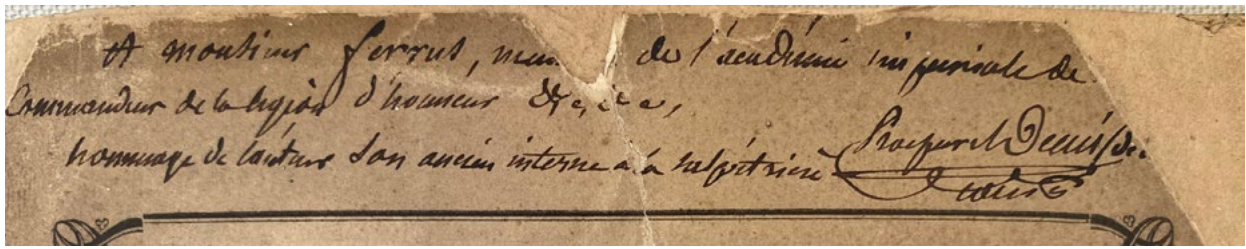 A monsieur ferrus, mem de l'académie impériale de
Commandeur de la légion d'honneur &c, &c &,
hommage de l'auteur son ancien interne a la salpétrière Prosper Denis (de